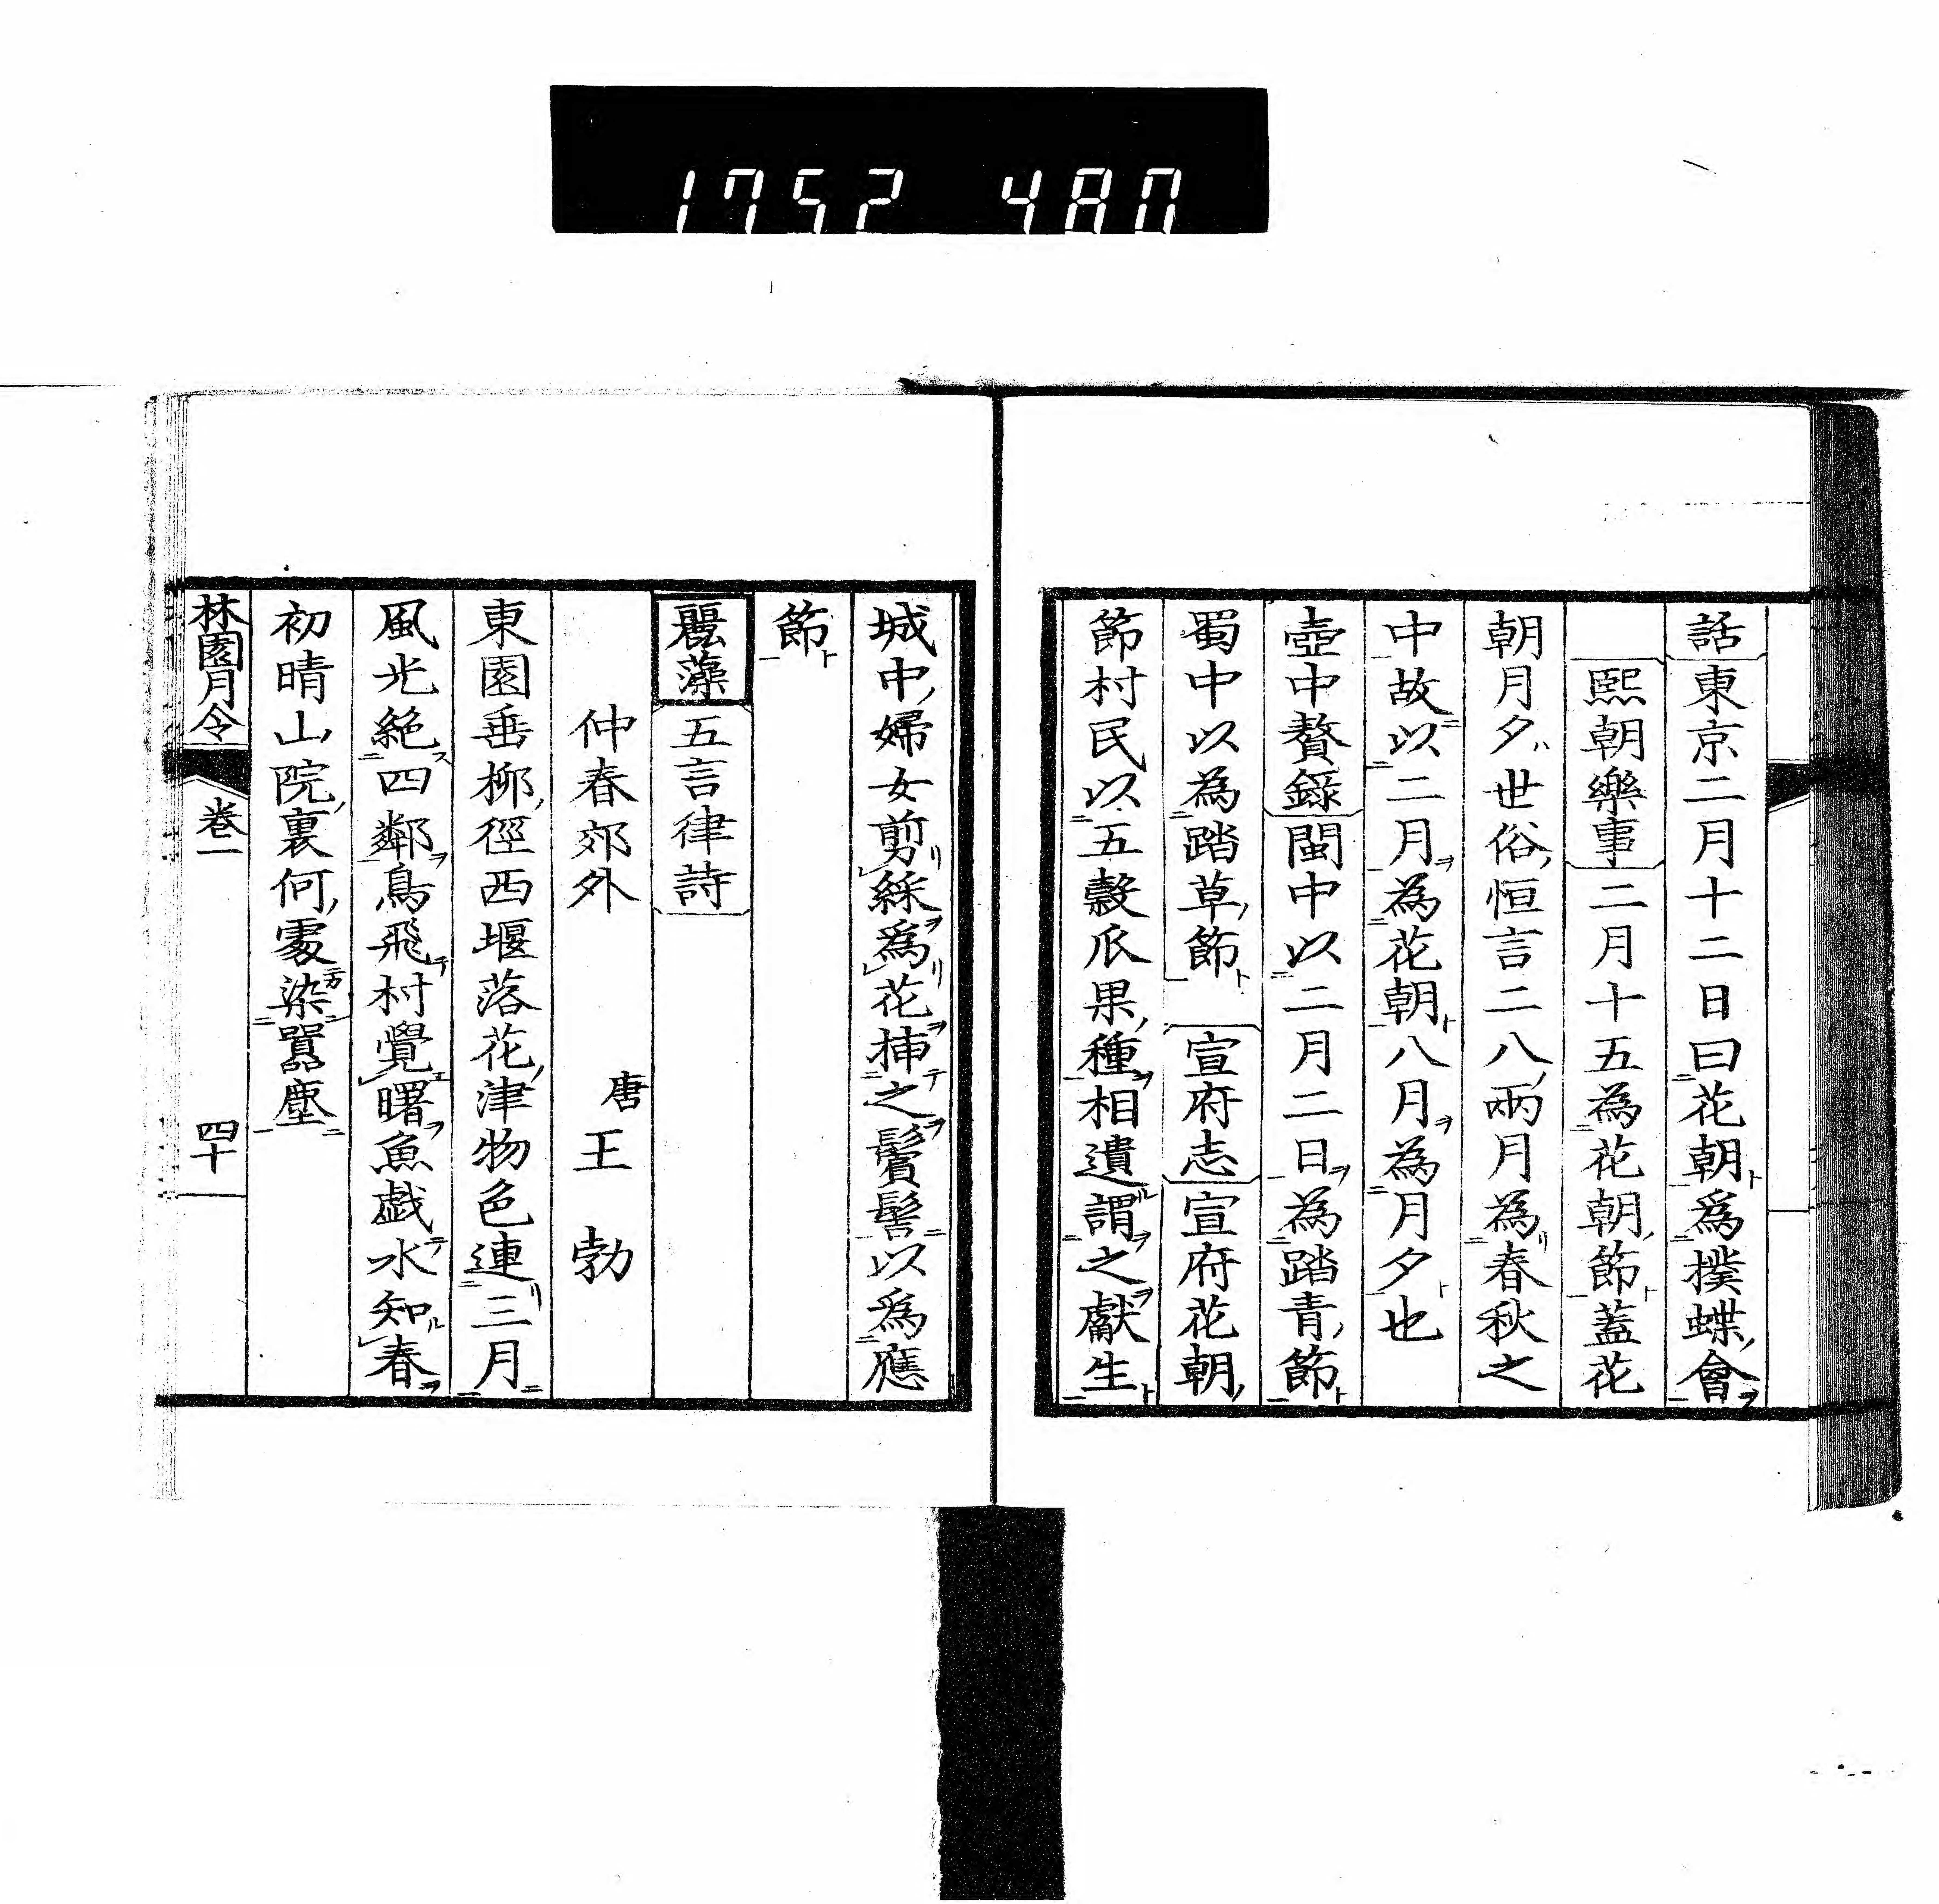 1752 480
話東京二月十二日曰花朝爲撲蝶會
熙朝樂事二月十五為花朝節蓋花
朝月夕世俗恒言二八兩月為春秋之
中故以二月為花朝八月為月夕也
壺中贅錄閩中以二月二日為踏青節
蜀中以為踏草節 宣府志宣府花朝
節村民以五穀瓜果種相遺謂之獻生
城中婦女剪綵爲花插之鬢髻以爲應
節
麗藻五言律詩
仲春郊外 唐王勃
東園垂柳徑西堰落花津物色連三月
風光絕四鄰鳥飛村覺曙魚戯水知春
初晴山院裏何處染囂塵
林園月令 卷一 四十